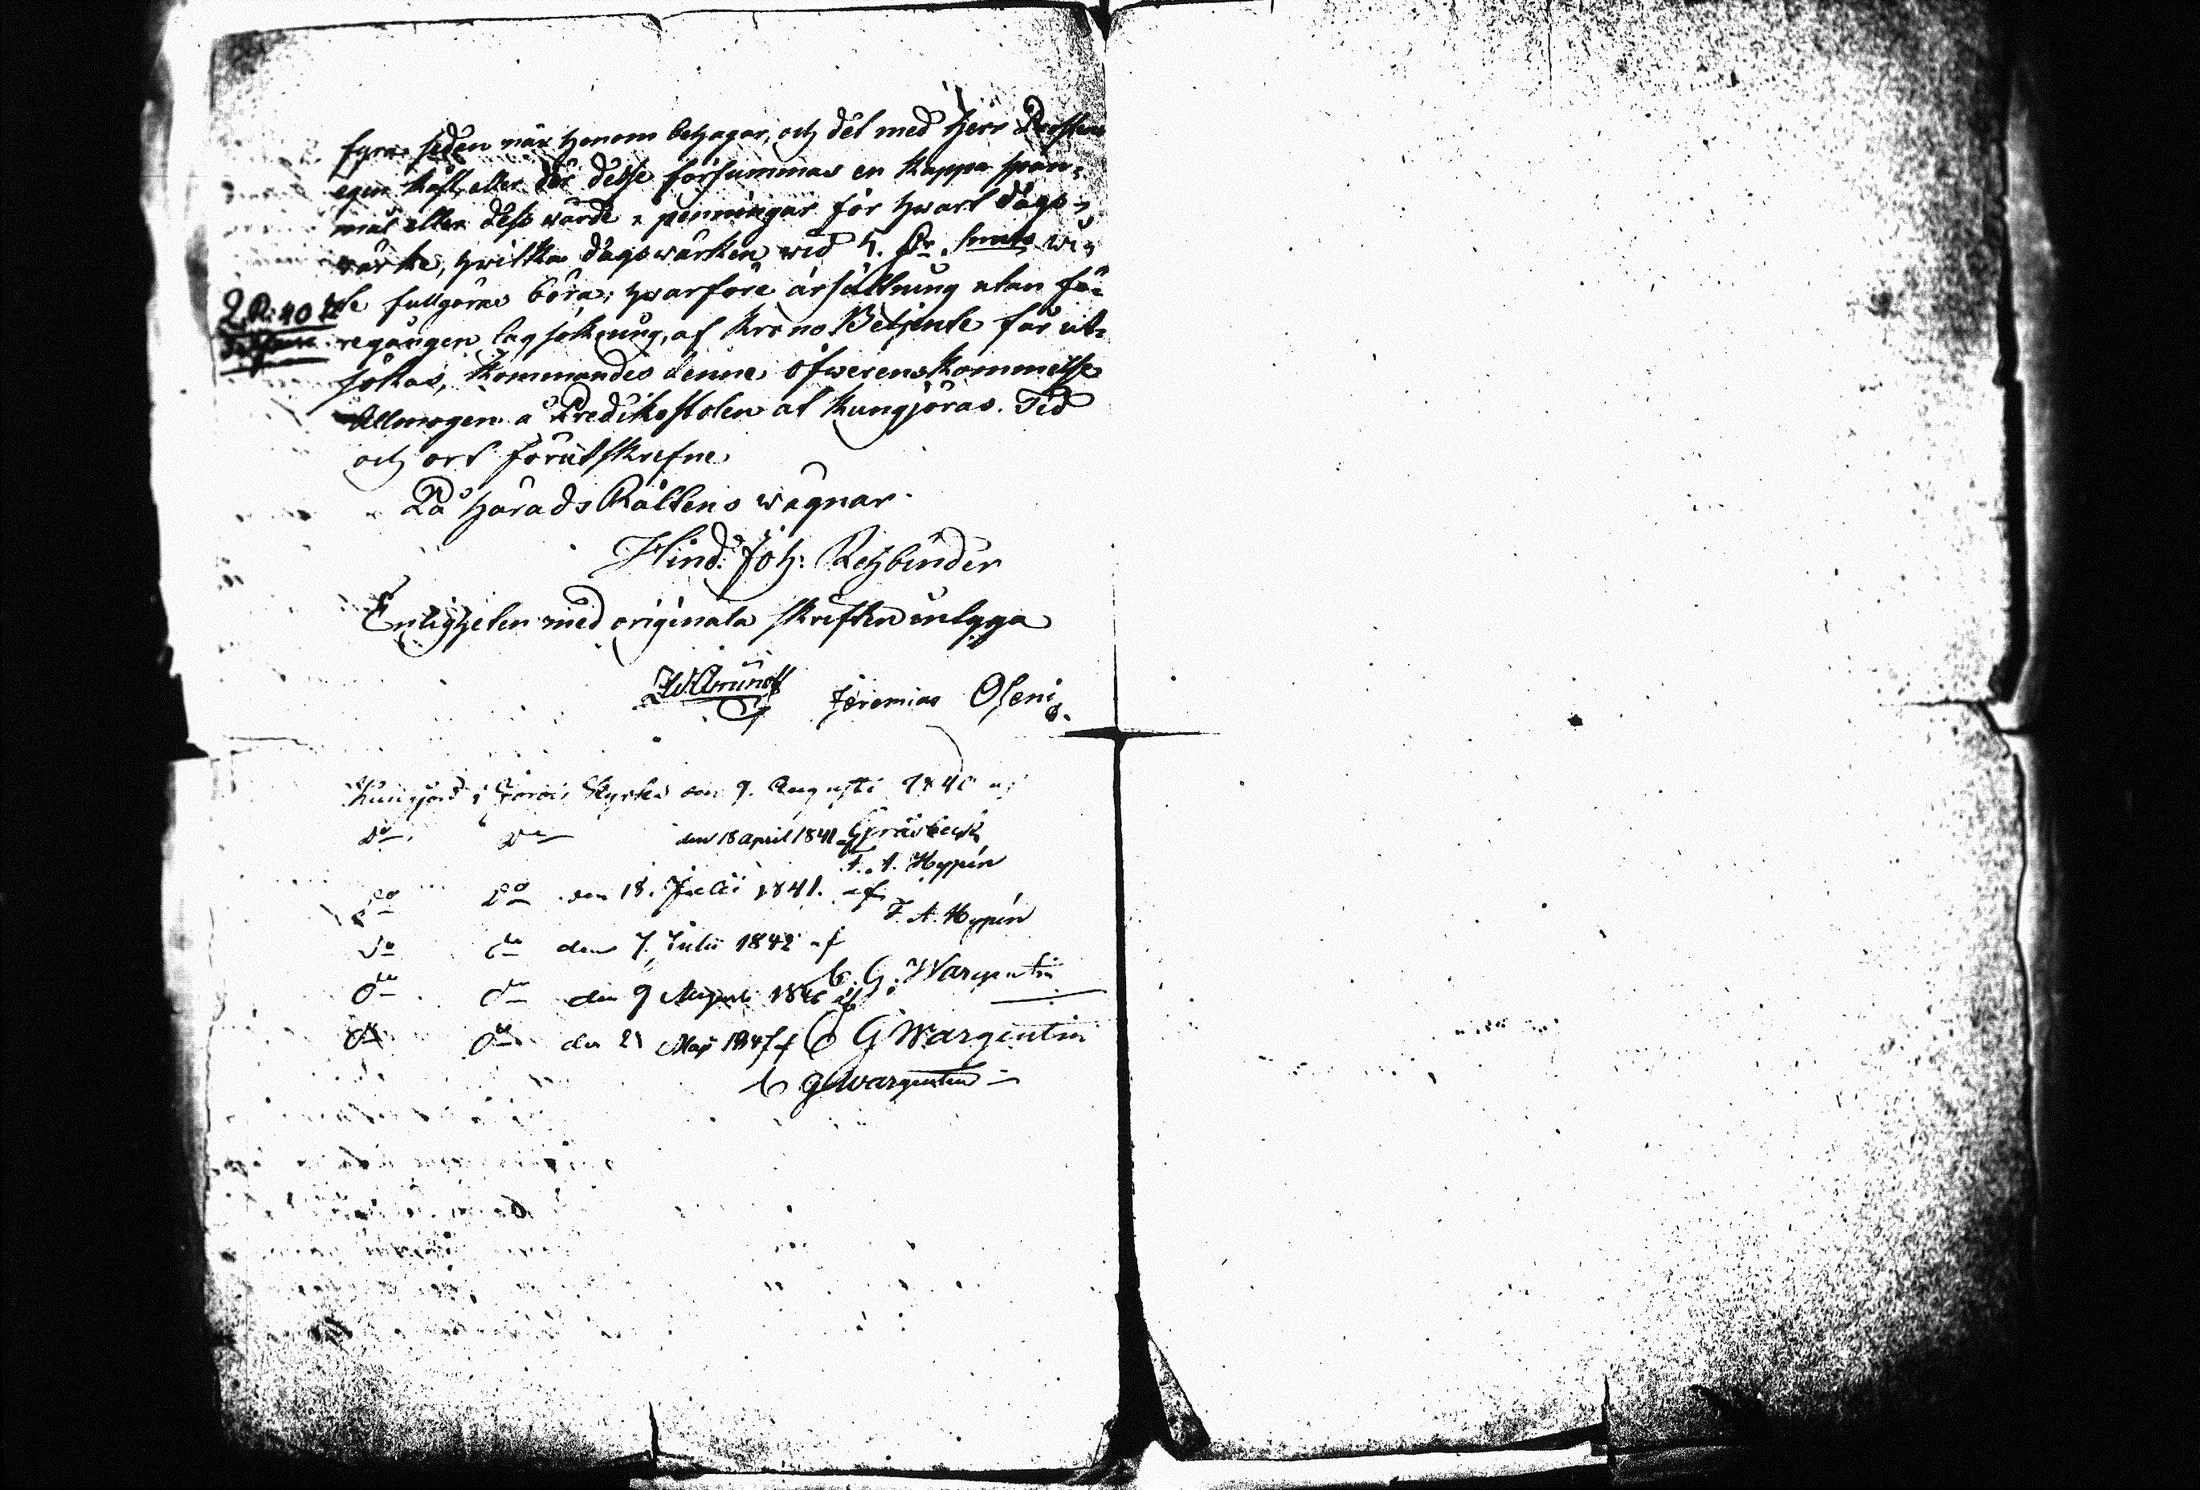 fyra sedan när honom behagar, och det med Herr Prostens
egen kost, eller der desse försummas en kappa span-
mål eller dess wärde i penningar för hwart dags-
wärke, hwilka dagswärken wid h. wi-
te fullgöras böra; hwarföre ärsättning utan fö-
2 R: 40
regången lagsökning, af Krono Betjente får ut-
sökas, kommandes denne öfwerenskommelse
Allmogen å Predikostolen at kungjöras. Tid
och ort förutskrefne
På Härads Rättens wägnar
Hind. Joh: Rehbinder
Enligheten med originala skriften intyga
Jeremias Oseni
Kungjord i Kyrka den 9. Augusti 1840 af
Do Do den 18 april 1841 af Gräsbeck
F. A. Hypén
Do Do den 18. Julii 1841. af
F. A. Hypén
Do do den 7. Julii 1842 af
C. G. Wargentin
do do den 9 Augusti 1846 af
C G Wargentin
do do den 21 Maji 1847 af
C G Wargentin